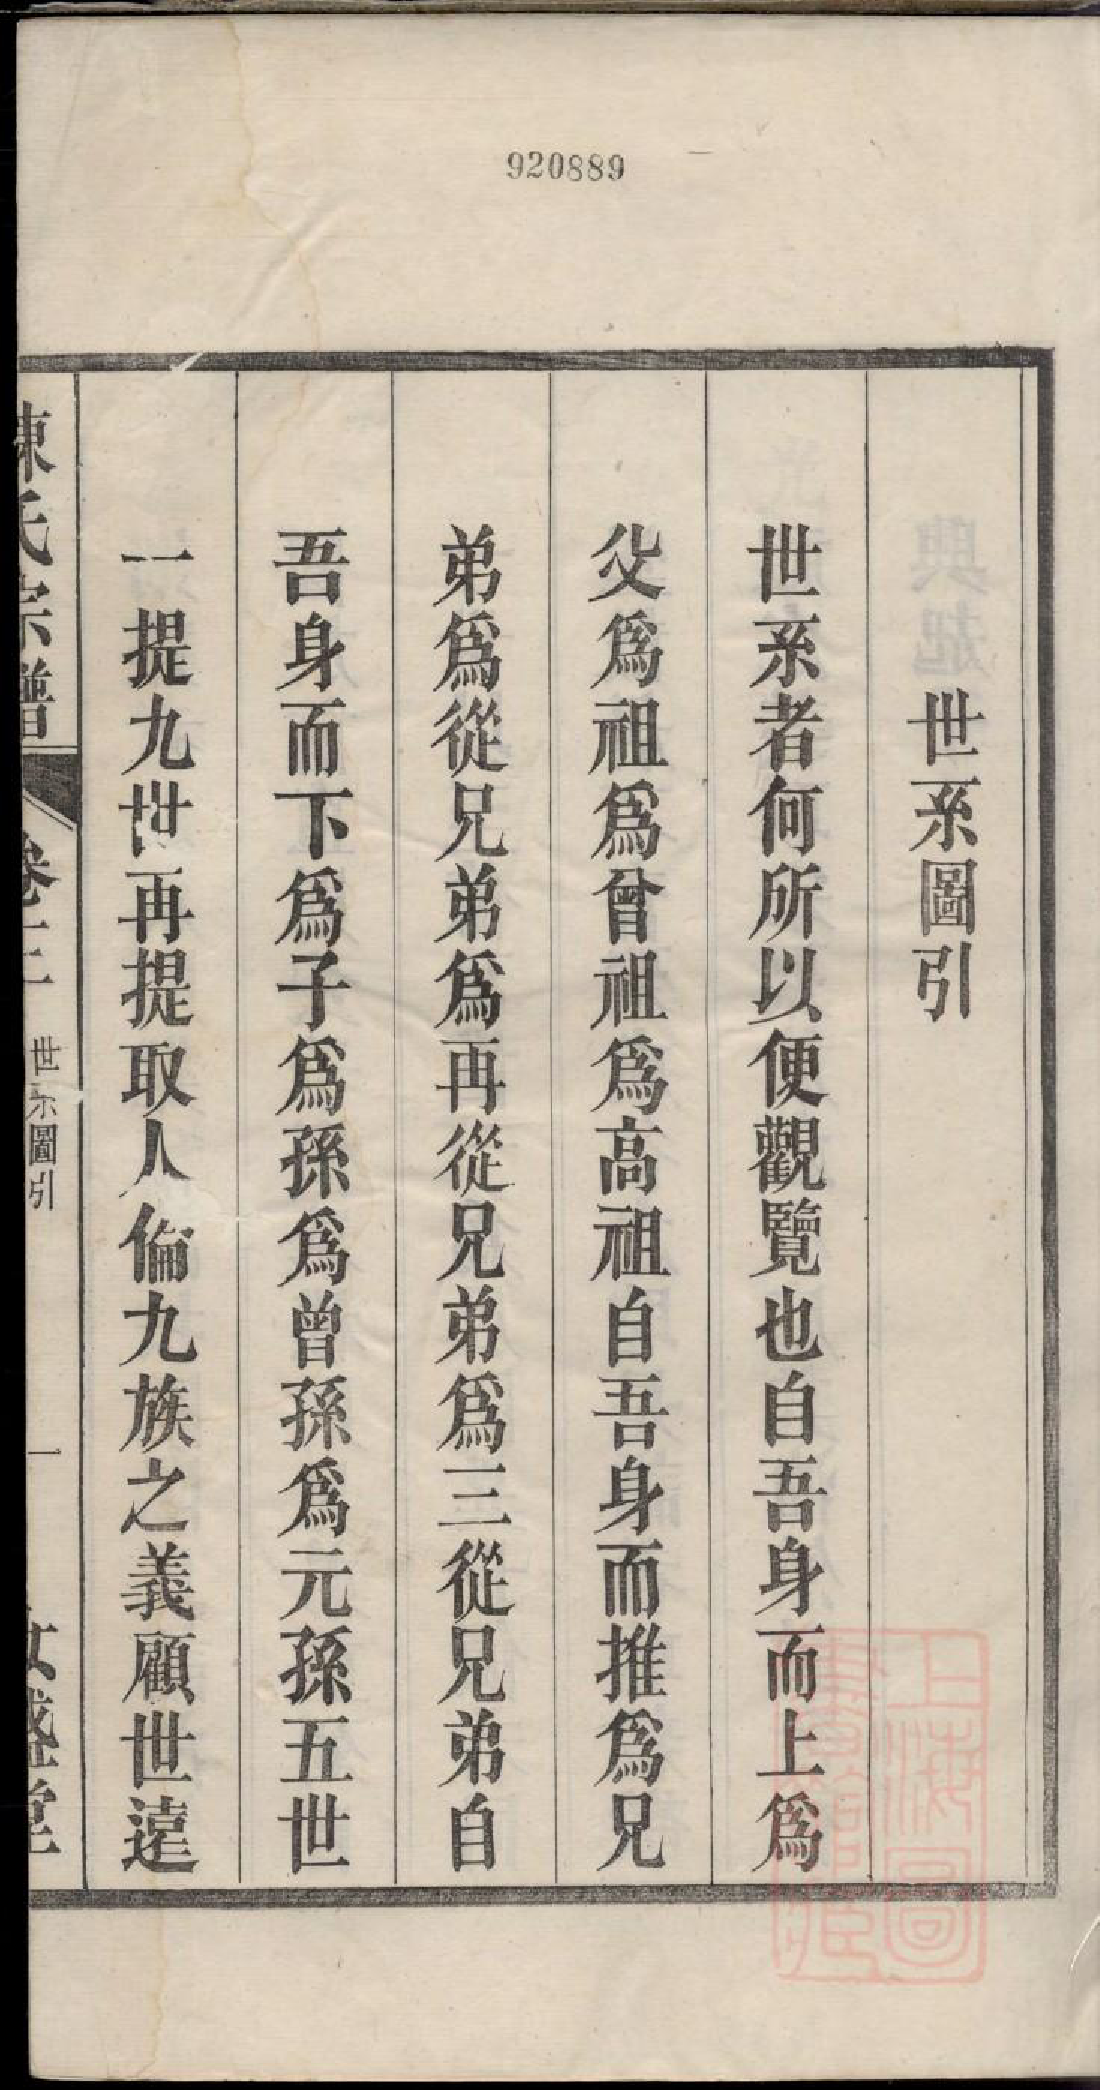 920889
世系圖引
世系者何所以便觀覽也自吾身而上爲
父爲祖爲曾祖爲高祖自吾身而推爲兄
弟爲從兄弟爲再從兄弟爲三從兄弟自
吾身而下爲子爲孫爲曾孫爲元孫五世
一提九世再提取人倫九族之義顧世遠
陳氏宗譜
卷二
世系圖引
一
盛堂
上海圖書館藏